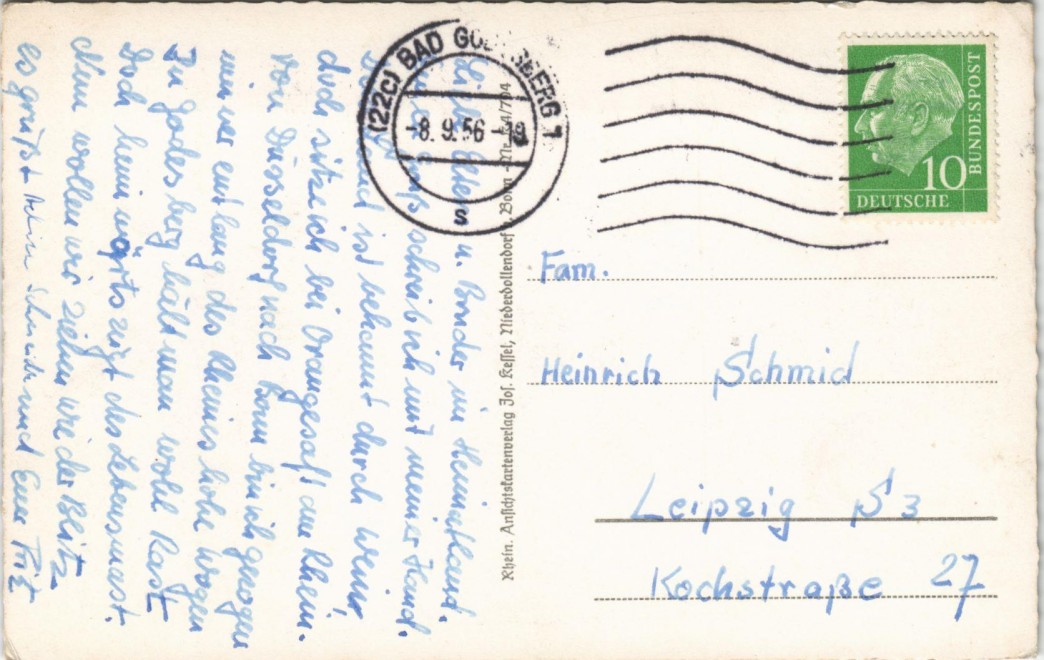 (22c) BAD GODESBERG 1
-8.9.56
s
10
DEUTSCHE
BUNDESPOST
u. Bruder im Heimatland.
schreib ich mit meiner Hand.
ist bekannt durch Wein,
doch sitze ich bei Orangesaft am Rhein.
Von Düsseldorf nach Bonn bin ich gezogen
immer entlang des Rheins hohe Wogen
In Godesberg hält man wohl Rast
Doch heimwärts zeigt des Lebensmast.
Nun wollen wir ziehen wie der Blitz
es grüßt und Euer Fritz
Rhein. Ansichtskartenverlag Jos. Kessel, Niederdollendorf Bonn
Fam.
Heinrich Schmid
Leipzig S 3
Kochstraße 27